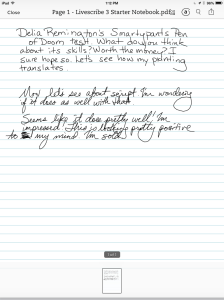 iPad
1:12 PM
Close
Page 1 - Livescribe 3 Starter Notebook.pdf
Delia Remington's Smartypants Pen
of Doom test. What do you think
about its skills? Worth the money? I
sure hope so. Let's see how my printing
translates.
Now let's see about script. I'm wondering
if it does as well with that.
Seems like it does pretty well! I'm
impressed! This is pretty positive
to my mind. I'm sold.
1 of 1